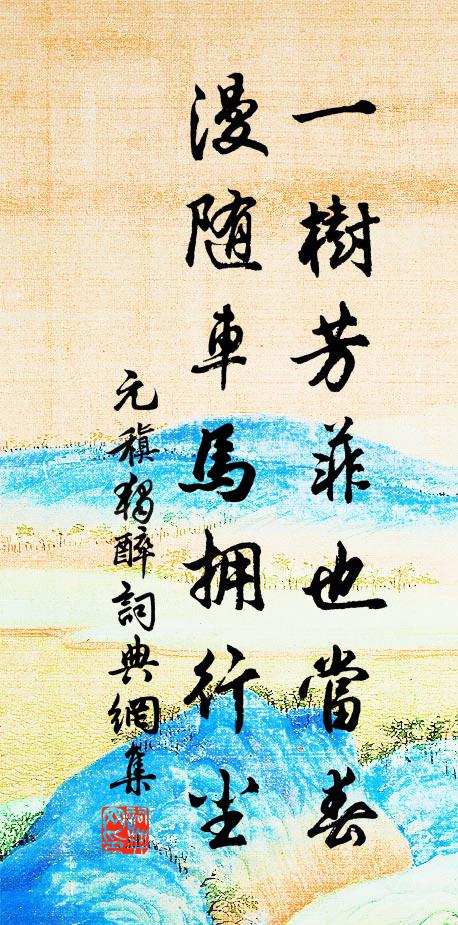 一樹芳菲也當春
漫随車馬拥行尘
元稹獨醉詞典網集